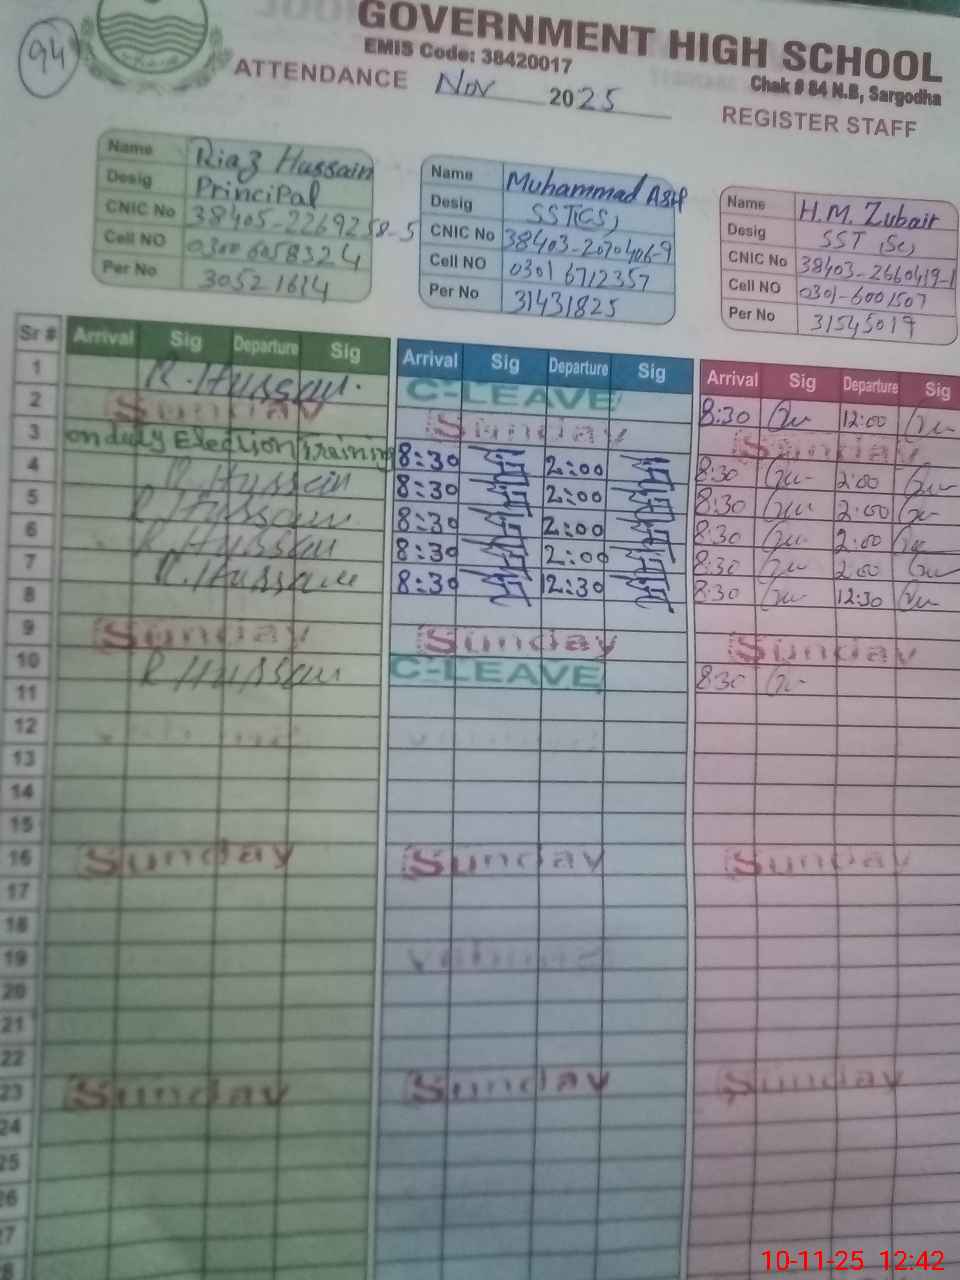 94
GOVERNMENT HIGH SCHOOL
EMIS Code: 38420017
Chak # 84 N.B, Sargodha
ATTENDANCE Nov 2025
REGISTER STAFF
Name Riaz Hussain
Desig Principal
CNIC No 38405-2269258-5
Cell NO 03006058324
Per No 30521614
Name Muhammad
Desig SST(CS)
CNIC No 38403-2070406-9
Cell NO 0301 6712357
Per No 31431825
Name H.M. Zubair
Desig SST (Sc)
CNIC No 38403-2660419-1
Cell NO 0301-6001507
Per No 31545019
Sr # Arrival Sig Departure Sig Arrival Sig Departure Sig Arrival Sig Departure Sig
1 R.Hussain. C-LEAVE 8:30 12:00
2 Sunday Sunday Sunday
3 on duty Election Training 8:30 2:00 8:30 2:00
4 R.Hussain 8:30 2:00 8:30 2:00
5 R Hussain 8:30 2:00 8:30 2:00
6 R Hussain 8:30 2:00 8:30 2:00
7 R.Hussain 8:30 12:30 8:30 12:30
8
9 Sunday Sunday Sunday
10 R Hussain C-LEAVE 8:30
11
12
13
14
15
16 Sunday Sunday Sunday
17
18
19
20
21
22
23 Sunday Sunday Sunday
24
25
26
27
10-11-25 12:42